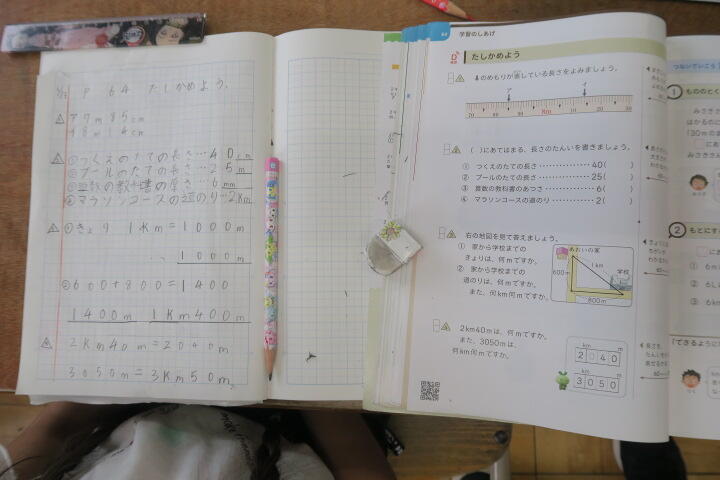 P 64 たしかめよう。
ア 7m85cm
イ 8m14cm
①つくえのたての長さ…40cm
②プールのたての長さ…25m
③算数の教科書の厚さ…6mm
④マラソンコースの道のり…2km
①きょり 1km=1000m
1000m
②600+800=1400
1400m 1km400m
2km40m=2040m
3050m=3km50m
64 学習のしあげ
たしかめよう
⬇のめもりが表している長さをよみましょう。
ア イ
70 80 90 8m 10 20 30
( )にあてはまる、長さのたんいを書きましょう。
① つくえのたての長さ…………40( )
② プールのたての長さ…………25( )
③ 算数の教科書のあつさ…………6( )
④ マラソンコースの道のり…………2( )
右の地図を見て答えましょう。
① 家から学校までの
きょりは、何mですか。
② 家から学校までの
道のりは、何mですか。
また、何km何mですか。
あおいの家
1km
学校
600m
800m
2km40mは、何mですか。
また、3050mは、
何km何mですか。
km m
2040
km m
3050
つないでいこう
1 もののなが
2 もとにす